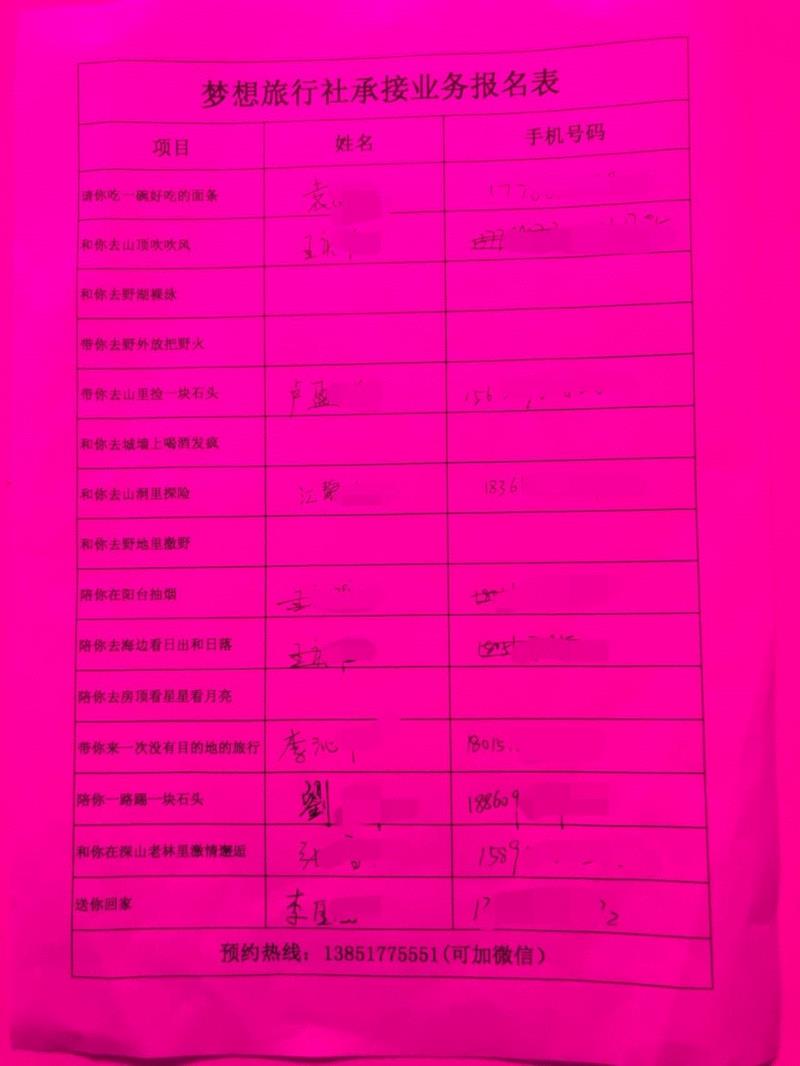 梦想旅行社承接业务报名表
项目 姓名 手机号码
请你吃一碗好吃的面条 袁 1770
和你去山顶吹吹风 王
和你去野湖裸泳
带你去野外放把野火
带你去山里捡一块石头 卢盈 156
和你去城墙上喝酒发疯
和你去山洞里探险 江 1836
和你去野地里撒野
陪你在阳台抽烟
陪你去海边看日出和日落 王
陪你去房顶看星星看月亮
带你来一次没有目的地的旅行 李沁 18015
陪你一路踢一块石头 劉 188609
和你在深山老林里激情邂逅 1589
送你回家 李 1
预约热线：13851775551(可加微信)